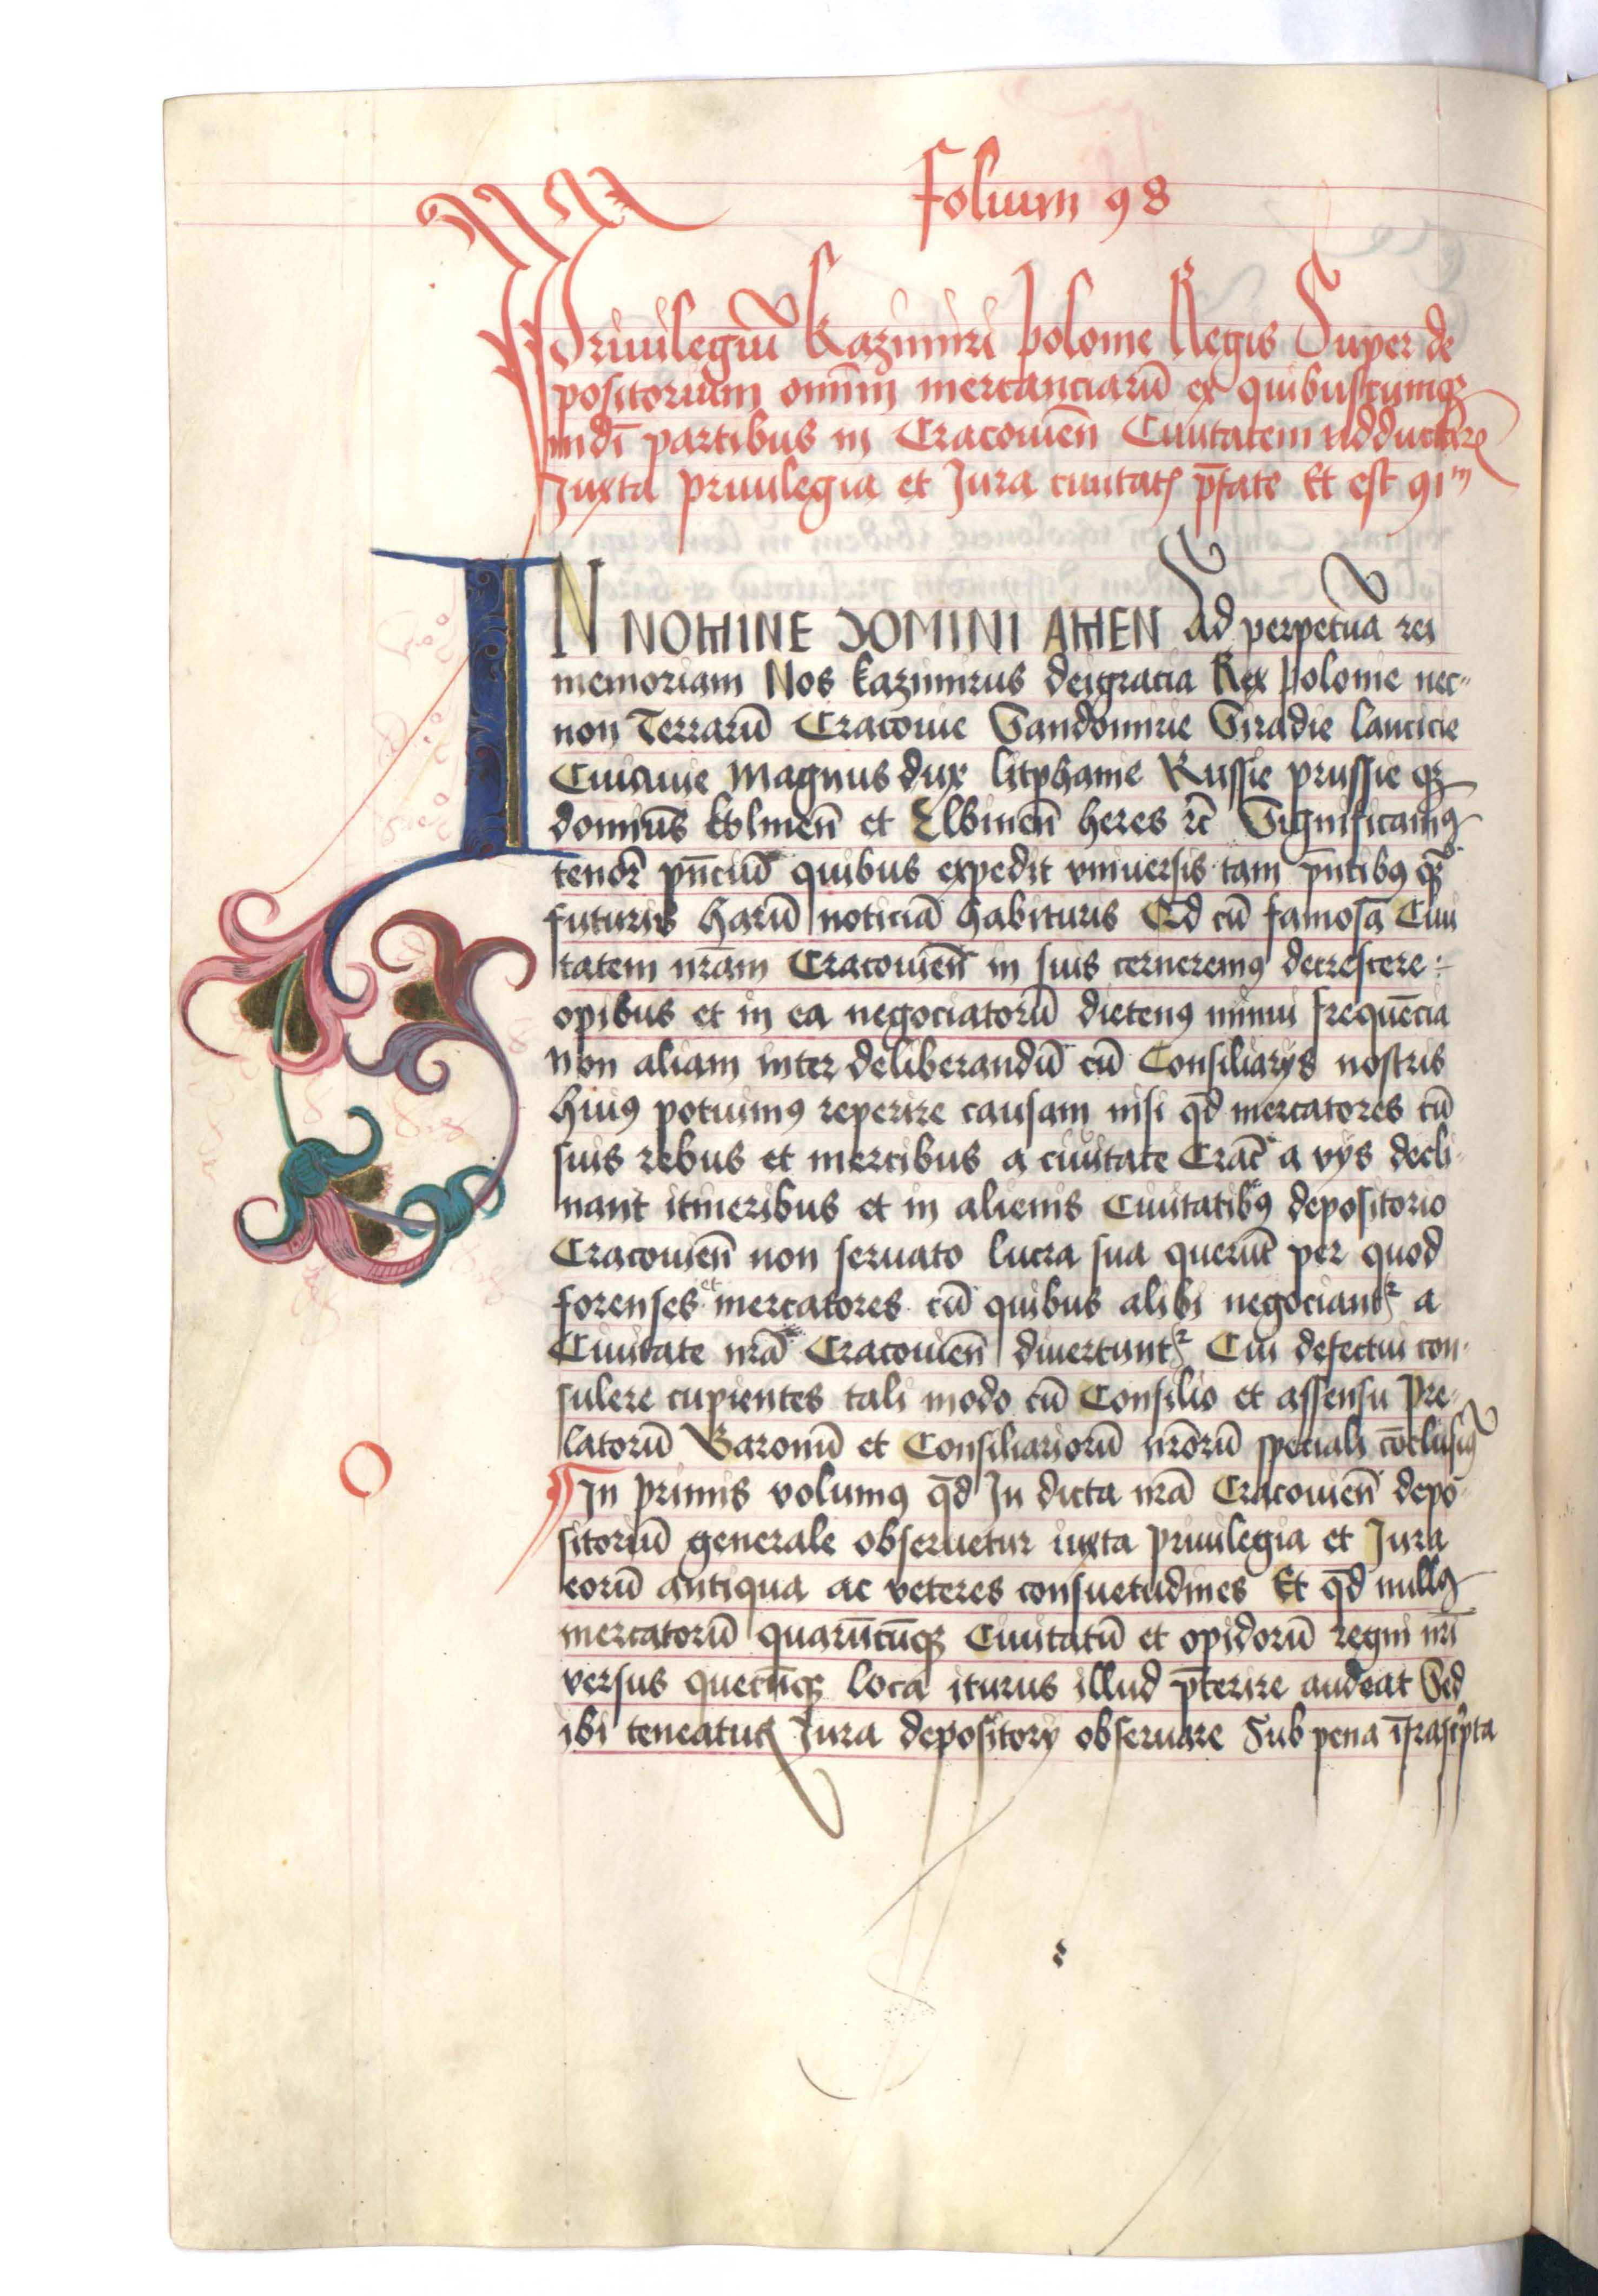 Folium 98
Priuilegiū Kazimiri Polonie Regis Super de
positorium omīm mercanciarū ex quibuscumqȝ
mdī partibus in Cracouieñ Ciuitatem adducendarꝝ
Juxta priuilegia et Jura ciuitatꝭ p̄fate Et est 91m
IN NOMINE DOMINI AMEN Ad perpetuā rei
memoriam Nos Kazimirus deigracia Rex Polonie nec-
non Terrarū Cracouie Sandomirie Siradie Lancicie
Cuiauie Magnus dux litphanie Russie prussie qȝ
dominus Kolmeñ et Elbineñ heres rc̄ Significamꝰ
tenore pn̄ciū quibus expedit vniuersis tam pn̄tibꝰ qȝ
futuris harū noticiā habituris Qd cū famosā Ciui
tatem nr̄am Cracouieñ in suis cerneremꝰ decrescere
opibus et in ea negociatorū dietenꝰ minui frequēcia
non aliam inter deliberandū cū Consiliarys nostris
huiꝰ potuimꝰ reperire causam nisi qd̄ mercatores cū
suis rebus et mercibus a ciuitate Crac̄ a vijs decli-
nant itineribus et in alienis Ciuitatibꝰ depositorio
Cracouieñ non seruato lucra sua querūt per quod
forenses et mercatores cū quibus alibi negociantꝛ a
Ciuitate nr̄a Cracouieñ diuertuntꝛ Cui defectui con-
sulere cupientes tali modo cū Consilio et assensu Pre-
latorū Baronū et Consiliariorū nr̄orū speciali cōclusimꝰ
¶ In primis volumꝰ qd̄ In dicta nr̄a Cracouieñ depo-
sitoriū generale obseruetur iuxta priuilegia et Jura
eorū antiqua ac veteres consuetudines Et qd̄ nullꝰ
mercatorū quarūcūqȝ Ciuitatū et opidorū regni nr̄i
versus quecūqȝ loca iturus illud p̄terire audeat Sed
ibi teneatur Jura depositorij obseruare Sub pena īfrascͥpta
O